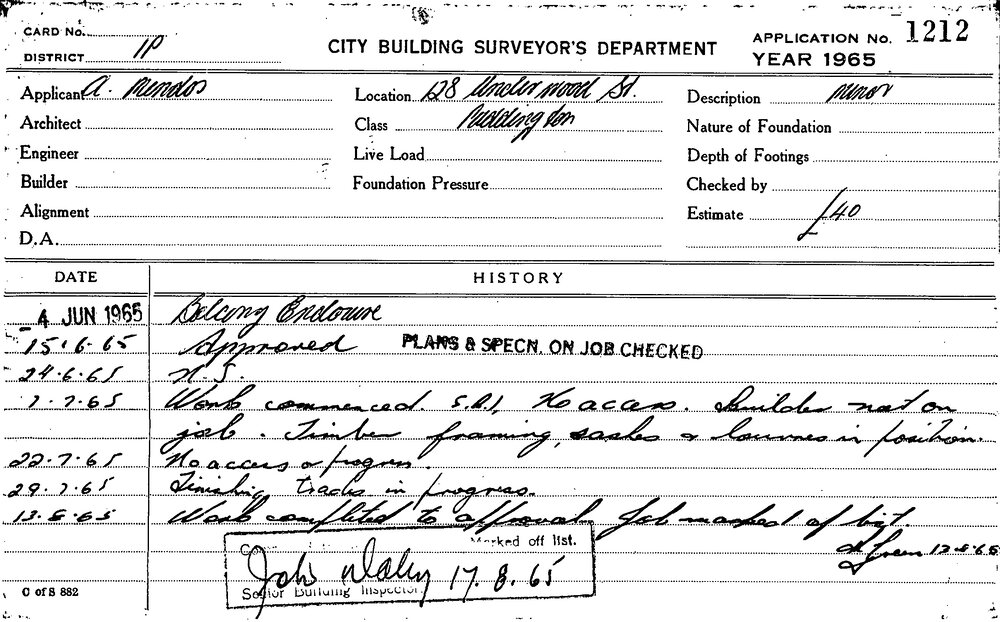 CARD No.
DISTRICT 1P
CITY BUILDING SURVEYOR'S DEPARTMENT
APPLICATION No. 1212
YEAR 1965
Applicant A. Mendos
Location 128 Underwood St.
Description Minor
Architect
Class Paddington
Nature of Foundation
Engineer
Live Load
Depth of Footings
Builder
Foundation Pressure
Checked by
Alignment
Estimate £40
D.A.
DATE HISTORY
4 JUN 1965 Balcony Enclosure
15.6.65 Approved PLANS & SPECN. ON JOB CHECKED
24.6.65 N.S.
7.7.65 Work commenced. S.R.I. No access. Builder not on
job. Timber framing, sashes & louvres in position.
22.7.65 No access or progress.
29.7.65 Finishing trades in progress.
13.8.65 Work completed to approval. Job marked of list.
Green 13.8.65
Marked off list.
John 17.8.65
Senior Building Inspector
C of S 882